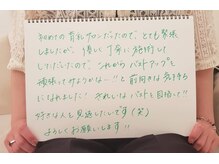 初めての育乳サロンだったので、とても緊張
しましたが、優しく丁寧に施術して
いただいたので、これからバストアップも
頑張って行なわなきゃ…!!と前向きな気持ち
になれました! きれいなバストを目指して!!
好きな人も見返したいです(笑)
よろしくお願いします!!